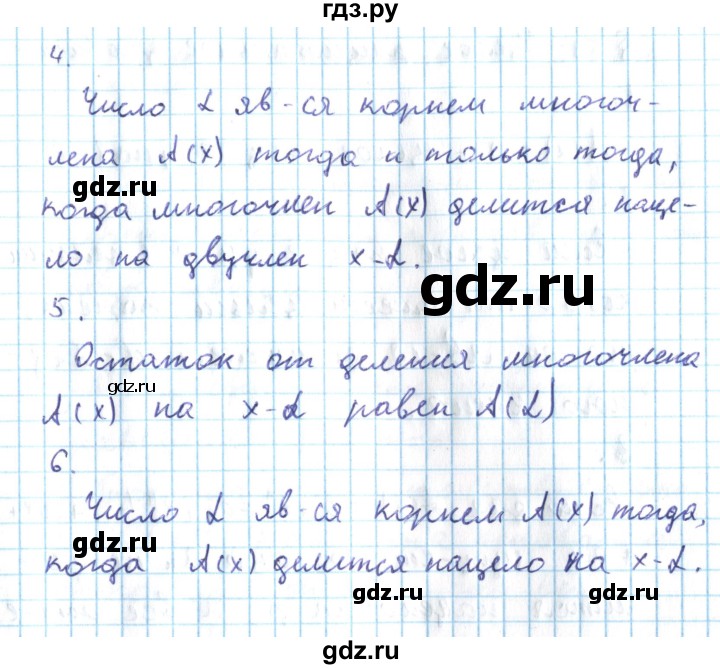 гдз.ру
4.
Число α яв-ся корнем многоч-
лена A(x) тогда и только тогда,
gdz.ru
когда многочлен A(x) делится наце-
ло на двучлен x-α.
gdz.ru
5.
Остаток от деления многочлена
gdz.ru
A(x) на x-α равен A(α)
6.
Число α яв-ся корнем A(x) тогда,
gdz.ru
когда A(x) делится нацело на x-α.
gdz.ru
gdz.ru